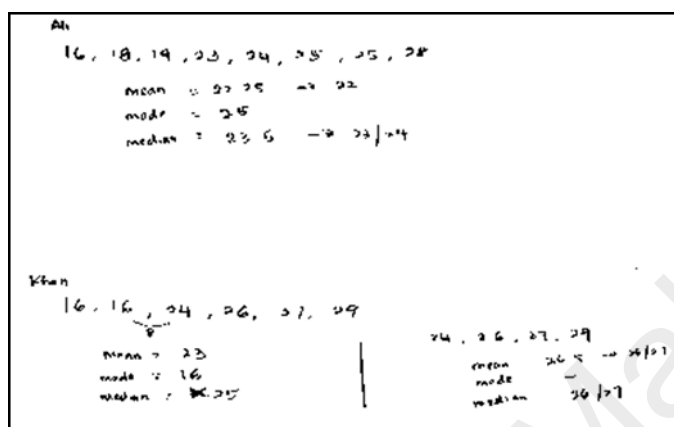 Ali
16, 18, 19, 23, 24, 25, 25, 28
mean = 22 25 → 22
mode = 25
median = 23 5 → 23/24
Khan
16, 16, 24, 26, 27, 29
mean = 23
mode = 16
median = 25
24, 26, 27, 29
mean 26 5 → 26/27
mode –
median 26/27